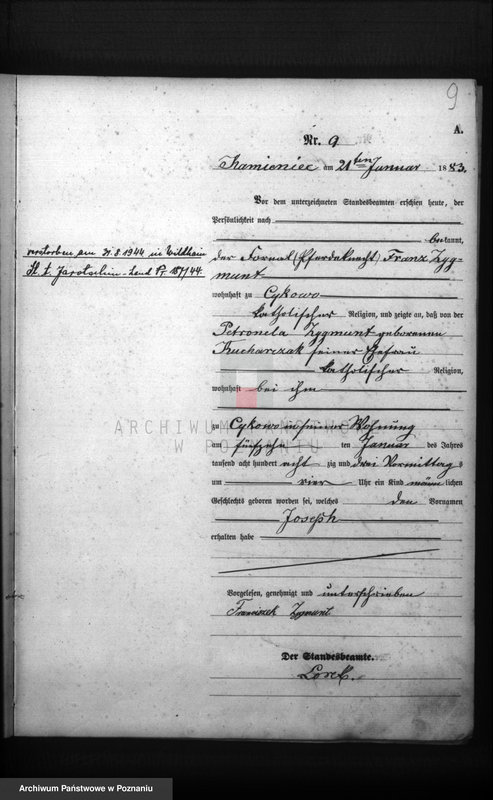 9
A.
Nr. 9
Kamieniec am 21ten Januar 1883.
Vor dem unterzeichneten Standesbeamten erschien heute, der
Persönlichkeit nach
bekannt,
der Fornal (Pferdeknecht) Franz Zyg-
munt
wohnhaft zu Cykowo
katholischer Religion, und zeigte an, daß von der
Petronela Zygmunt geborenen
Kucharczak seiner Ehefrau
katholischer Religion,
wohnhaft bei ihm
zu Cykowo in seiner Wohnung
am fünfzehn ten Januar des Jahres
tausend acht hundert acht zig und drei Vormittag s
um vier Uhr ein Kind männ lichen
Geschlechts geboren worden sei, welches den Vornamen
Joseph
erhalten habe
Vorgelesen, genehmigt und unterschrieben
Franciszek Zygmunt
Der Standesbeamte.
verstorben am 31.8.1944 in
St. A. Jarotschin-Land Nr. 187/44.
ARCHIWUM PAŃSTWOWE
W POZNANIU
Archiwum Państwowe w Poznaniu